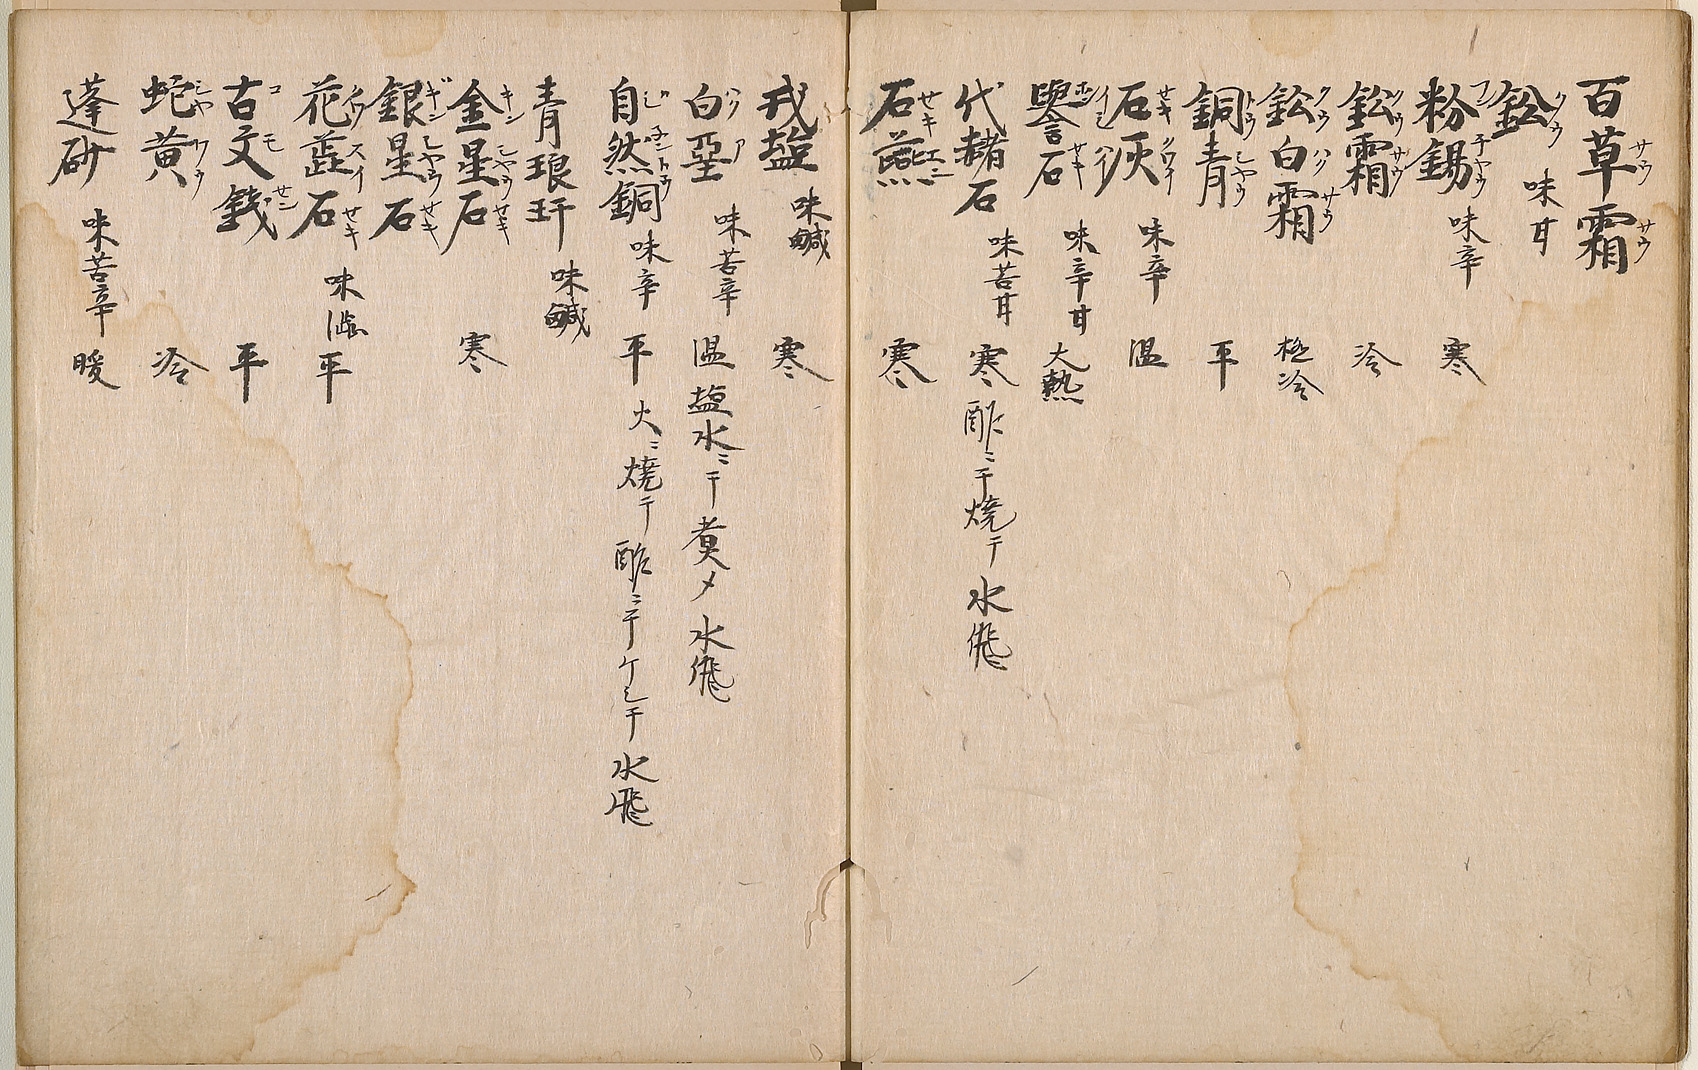 百草霜
鈆 味甘
粉錫 味辛 寒
鈆霜 冷
鈆白霜 極冷
銅青 平
石灰 味辛 温
礜石 味辛甘 大熱
代赭石 味苦甘 寒 酢ニテ焼テ水飛
石燕 寒
戎塩 味鹹 寒
白堊 味苦辛 温 塩水ニテ煮〆水飛
自然銅 味辛 平 火ニ焼テ酢ニテケシテ水飛
青琅玕 味鹹
金星石 寒
銀星石
花蕋石 味澁 平
古文銭 平
蛇黄 冷
蓬砂 味苦辛 暖